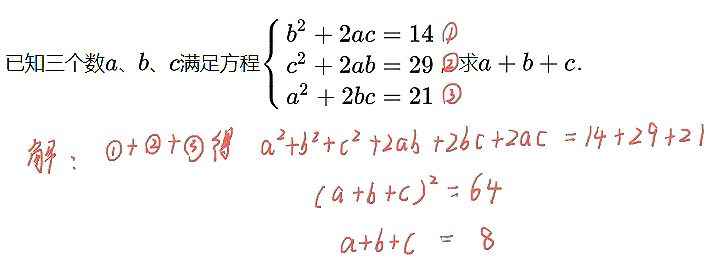 已知三个数a、b、c满足方程{b² + 2ac = 14 ①
c² + 2ab = 29 ② 求a + b + c.
a² + 2bc = 21 ③
解: ①+②+③得 a²+b²+c²+2ab+2bc+2ac =14+29+21
(a+b+c)²=64
a+b+c = 8